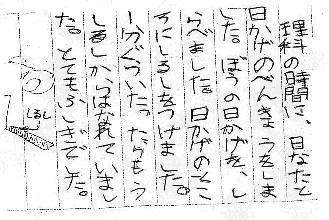 理科の時間に、日なたと
日かげのべんきょうをしま
した。ぼうの日かげを、し
らべました。日かげのとこ
ろにしるしをつけました。
一分ぐらいたったらもう
しるしからはなれていまし
た。とてもふしぎでした。
しるし